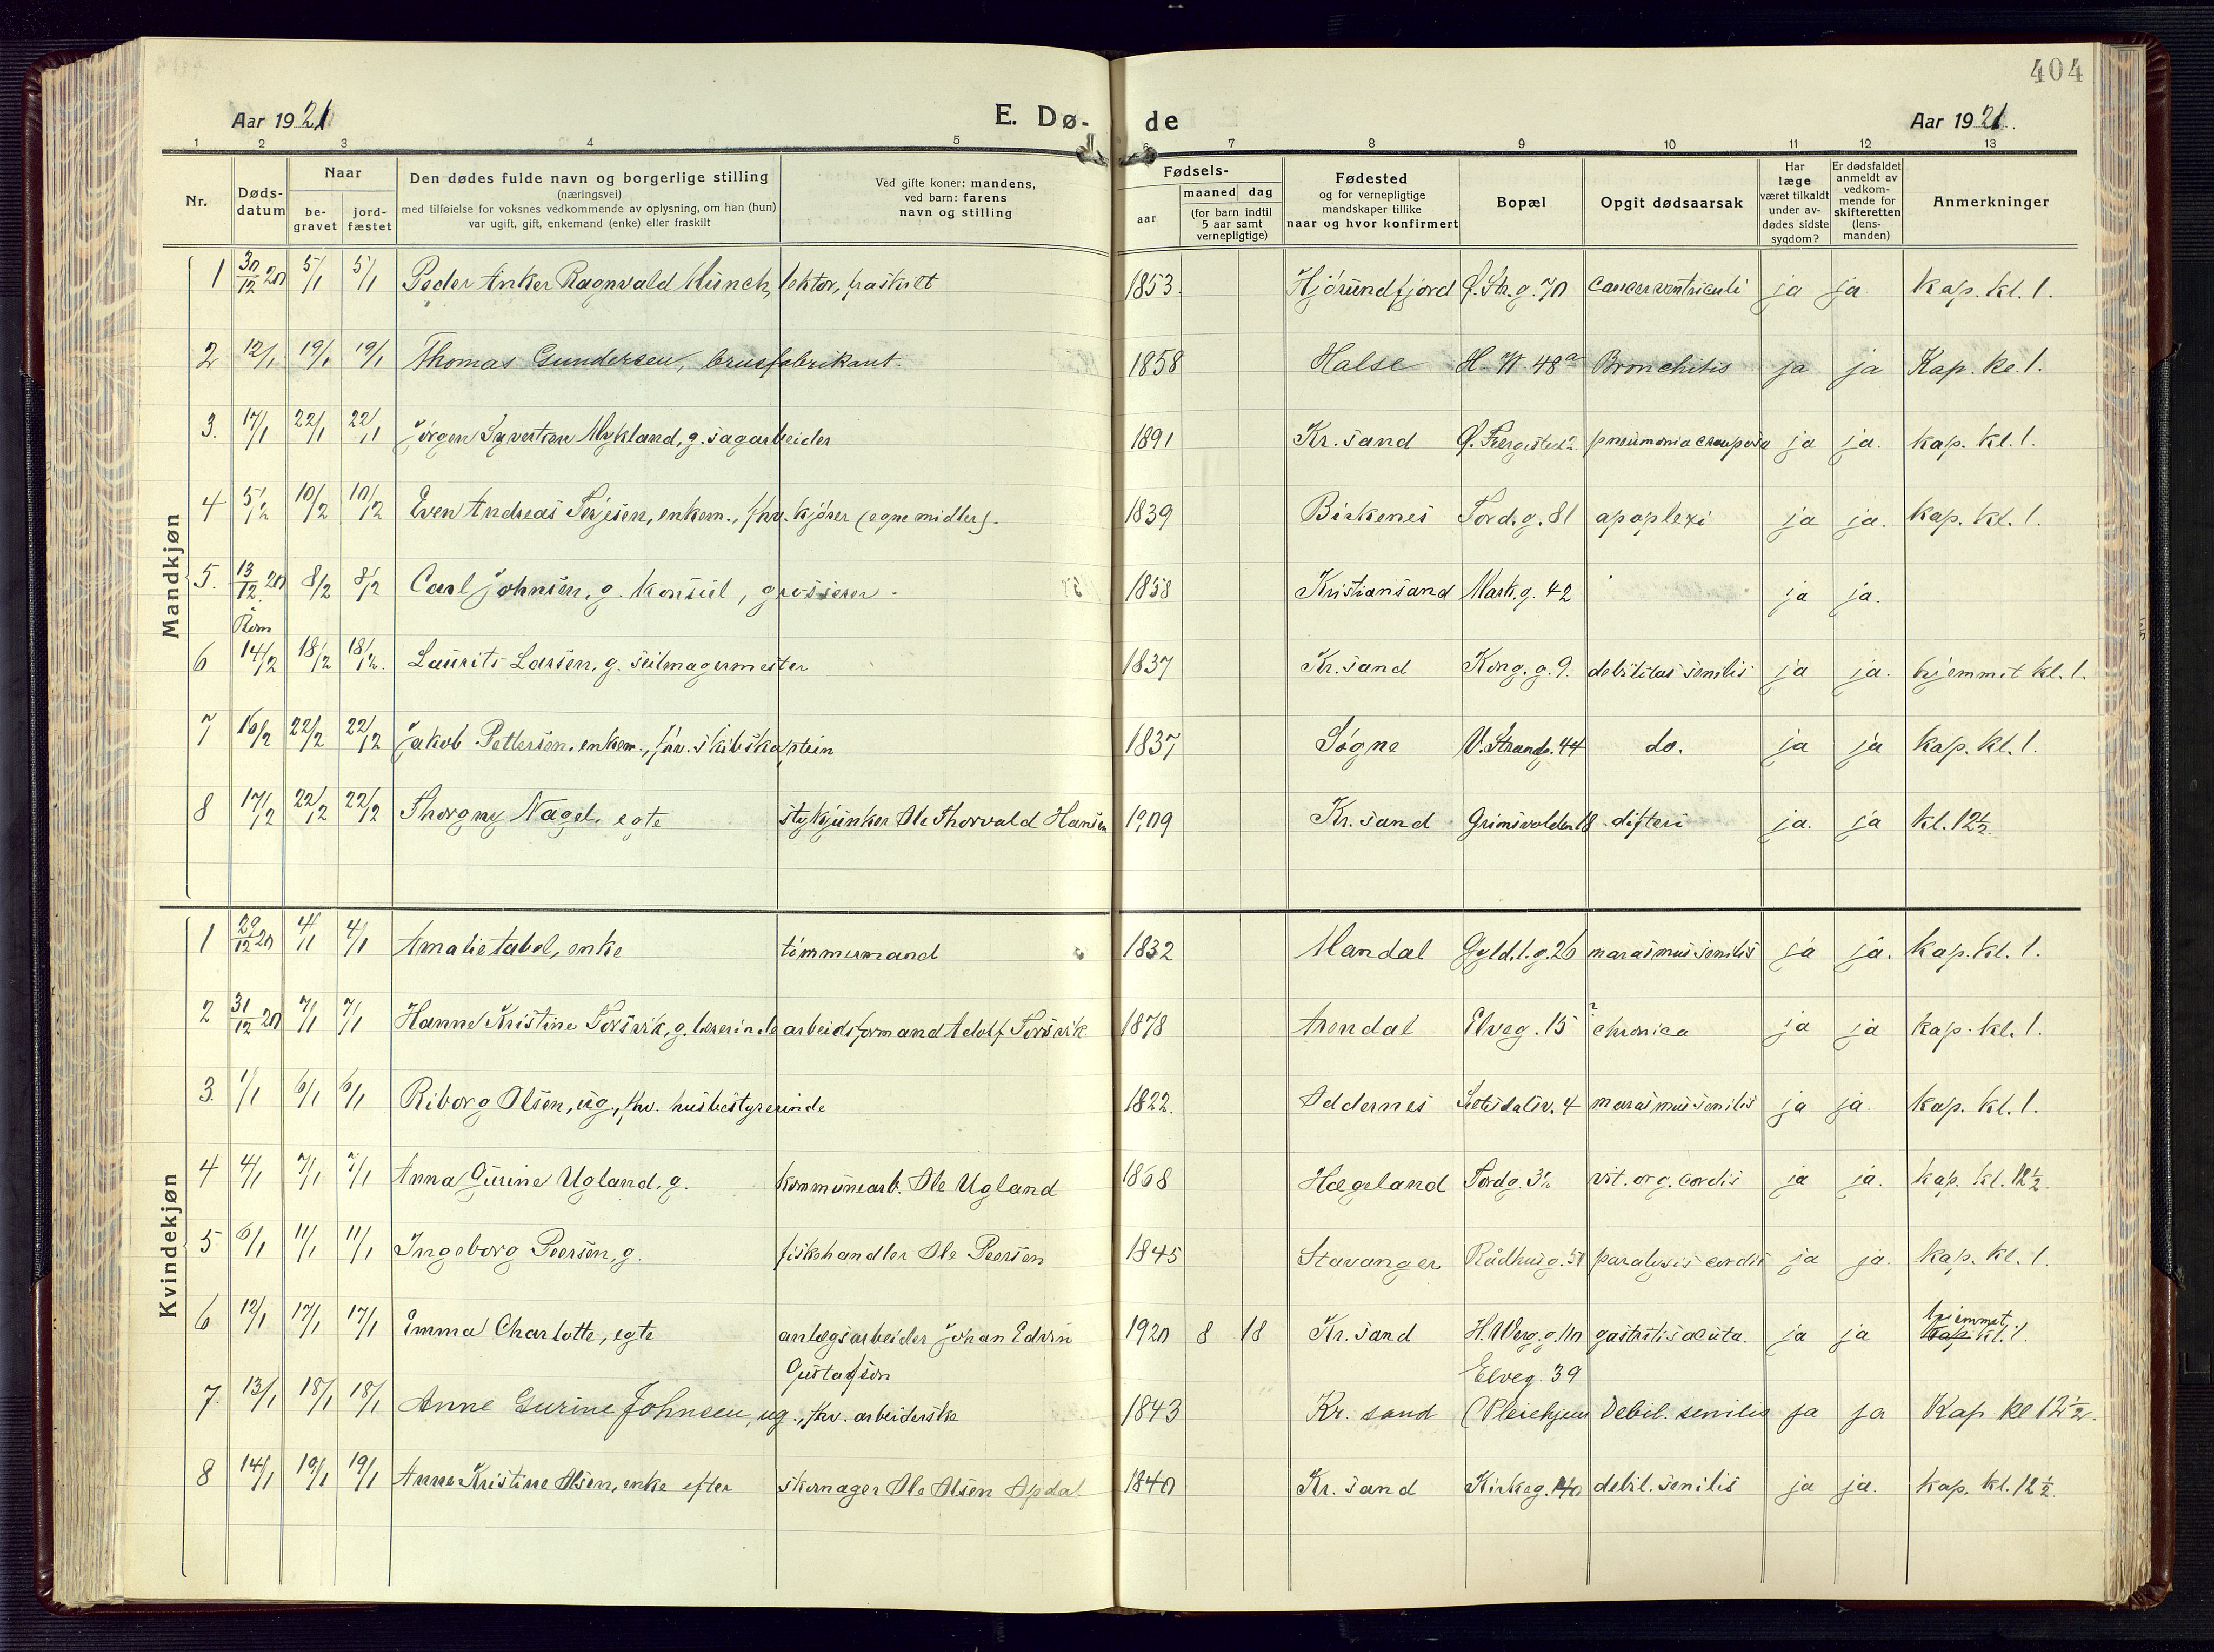 404
Aar 1921. E. Dø- de Aar 1921.
1 2 3 4 5 6 7 8 9 10 11 12 13
Nr. Døds-datum Naar be-gravet jord-fæstet Den dødes fulde navn og borgerlige stilling (næringsvei) med tilføielse for voksnes vedkommende av oplysning, om han (hun) var ugift, gift, enkemand (enke) eller fraskilt Ved gifte koner: mandens, ved barn: farens navn og stilling Fødsels- aar maaned dag (for barn indtil 5 aar samt vernepligtige) Fødested og for vernepligtige mandskaper tillike naar og hvor konfirmert Bopæl Opgit dødsaarsak Har læge været tilkaldt under av-dødes sidste sygdom? Er dødsfaldet anmeldt av vedkom-mende for skifteretten (lens-manden) Anmerkninger
Mandkjøn
1 30/12 20 5/1 5/1 Peder Anker Ragnvald Münch, lektor, fraskilt 1853. Hjørundfjord Ø. Str. g. 70 cancer ventriculi ja ja. kap. kl. 1.
2 12/1 19/1 19/1 Thomas Gundersen, brusfabrikant. 1858 Halse H. W. 48a Bronchitis ja ja Kap. kl. 1.
3. 17/1 22/1 22/1 Jørgen Syvertsen Mykland, g. sagarbeider 1891 Kr. sand pneumonia crouposa ja ja. kap. kl. 1.
4 5/2 10/2 10/2 Even Andreas Terjesen, enkem., fhv. kjører (egne midler). 1839 Birkenes Tord. g. 81 apoplexi ja ja. kap. kl. 1.
5. 13/12 20 i Rom 8/2 8/2 Carl Johnsen, g. konsul, grosserer. 1858 Kristiansand Mark. g. 42 ja ja.
6 14/2 18/2 18/2. Laurits Larsen, g. seilmagermester 1837 Kr. sand Kong. g. 9. debilitas senilis ja ja. hjemmet kl. 1.
7 16/2 22/2 22/2 Jakob Pettersen, enkem., fhv. skibskaptein 1837 Søgne V. Strandg. 44 do. ja ja kap. kl. 1.
8 17/2 22/2 22/2 Thorgny Nagel, egte stykjunker Ole Thorvald Hansen 1909 Kr. sand Grimsvolden 18 difteri ja. ja kl. 12½.
Kvindekjøn
1 29/12 20 4/1 4/1 Amalie Abel, enke tømmermand 1832 Mandal Gyld. l. g. 26 marasmus senilis ja ja. kap. kl. 1.
2 31/12 20 7/1 7/1 Hanne Kristine Torsvik, g. lærerinde arbeidsformand Adolf Torsvik 1878 Arendal Elveg. 15 ? chronica ja ja kap. kl. 1.
3. 1/1 6/1 6/1 Riborg Olsen, ug., fhv. husbestyrerinde 1822. Oddernes 4 marasmus senilis ja ja. kap. kl. 1.
4 4/1 7/1 7/1 Anna Gurine Ugland, g. kommunearb. Ole Ugland 1868 Hægeland Tordg. vit. org. cordis ja ja. kap. kl. 12½.
5 6/1 11/1 11/1 Ingeborg Peersen, g. fiskehandler Ole Peersen 1845 Stavanger Rådhusg. paralysis cordis ja ja. kap. kl. 1.
6 12/1 17/1 17/1 Emma Charlotte, egte anlægsarbeider Johan Edvin Gustafson 1920 8 18 Kr. sand H. Werg. g. 110 gastritis acuta. ja ja hjemmet kap. kl. 1.
7. 13/1 18/1 18/1 Anne Gurine Johnsen, ug., fhv. arbeiderske 1843 Kr. sand Elveg. 39 (Pleiehjem Debil. senilis ja ja Kap kl 12½.
8 14/1 19/1 19/1 Anne Kristine Olsen, enke efter skomager Ole Olsen Opdal 1840 Kr. sand Kirkeg. debil. senilis ja ja. kap. kl. 12½.